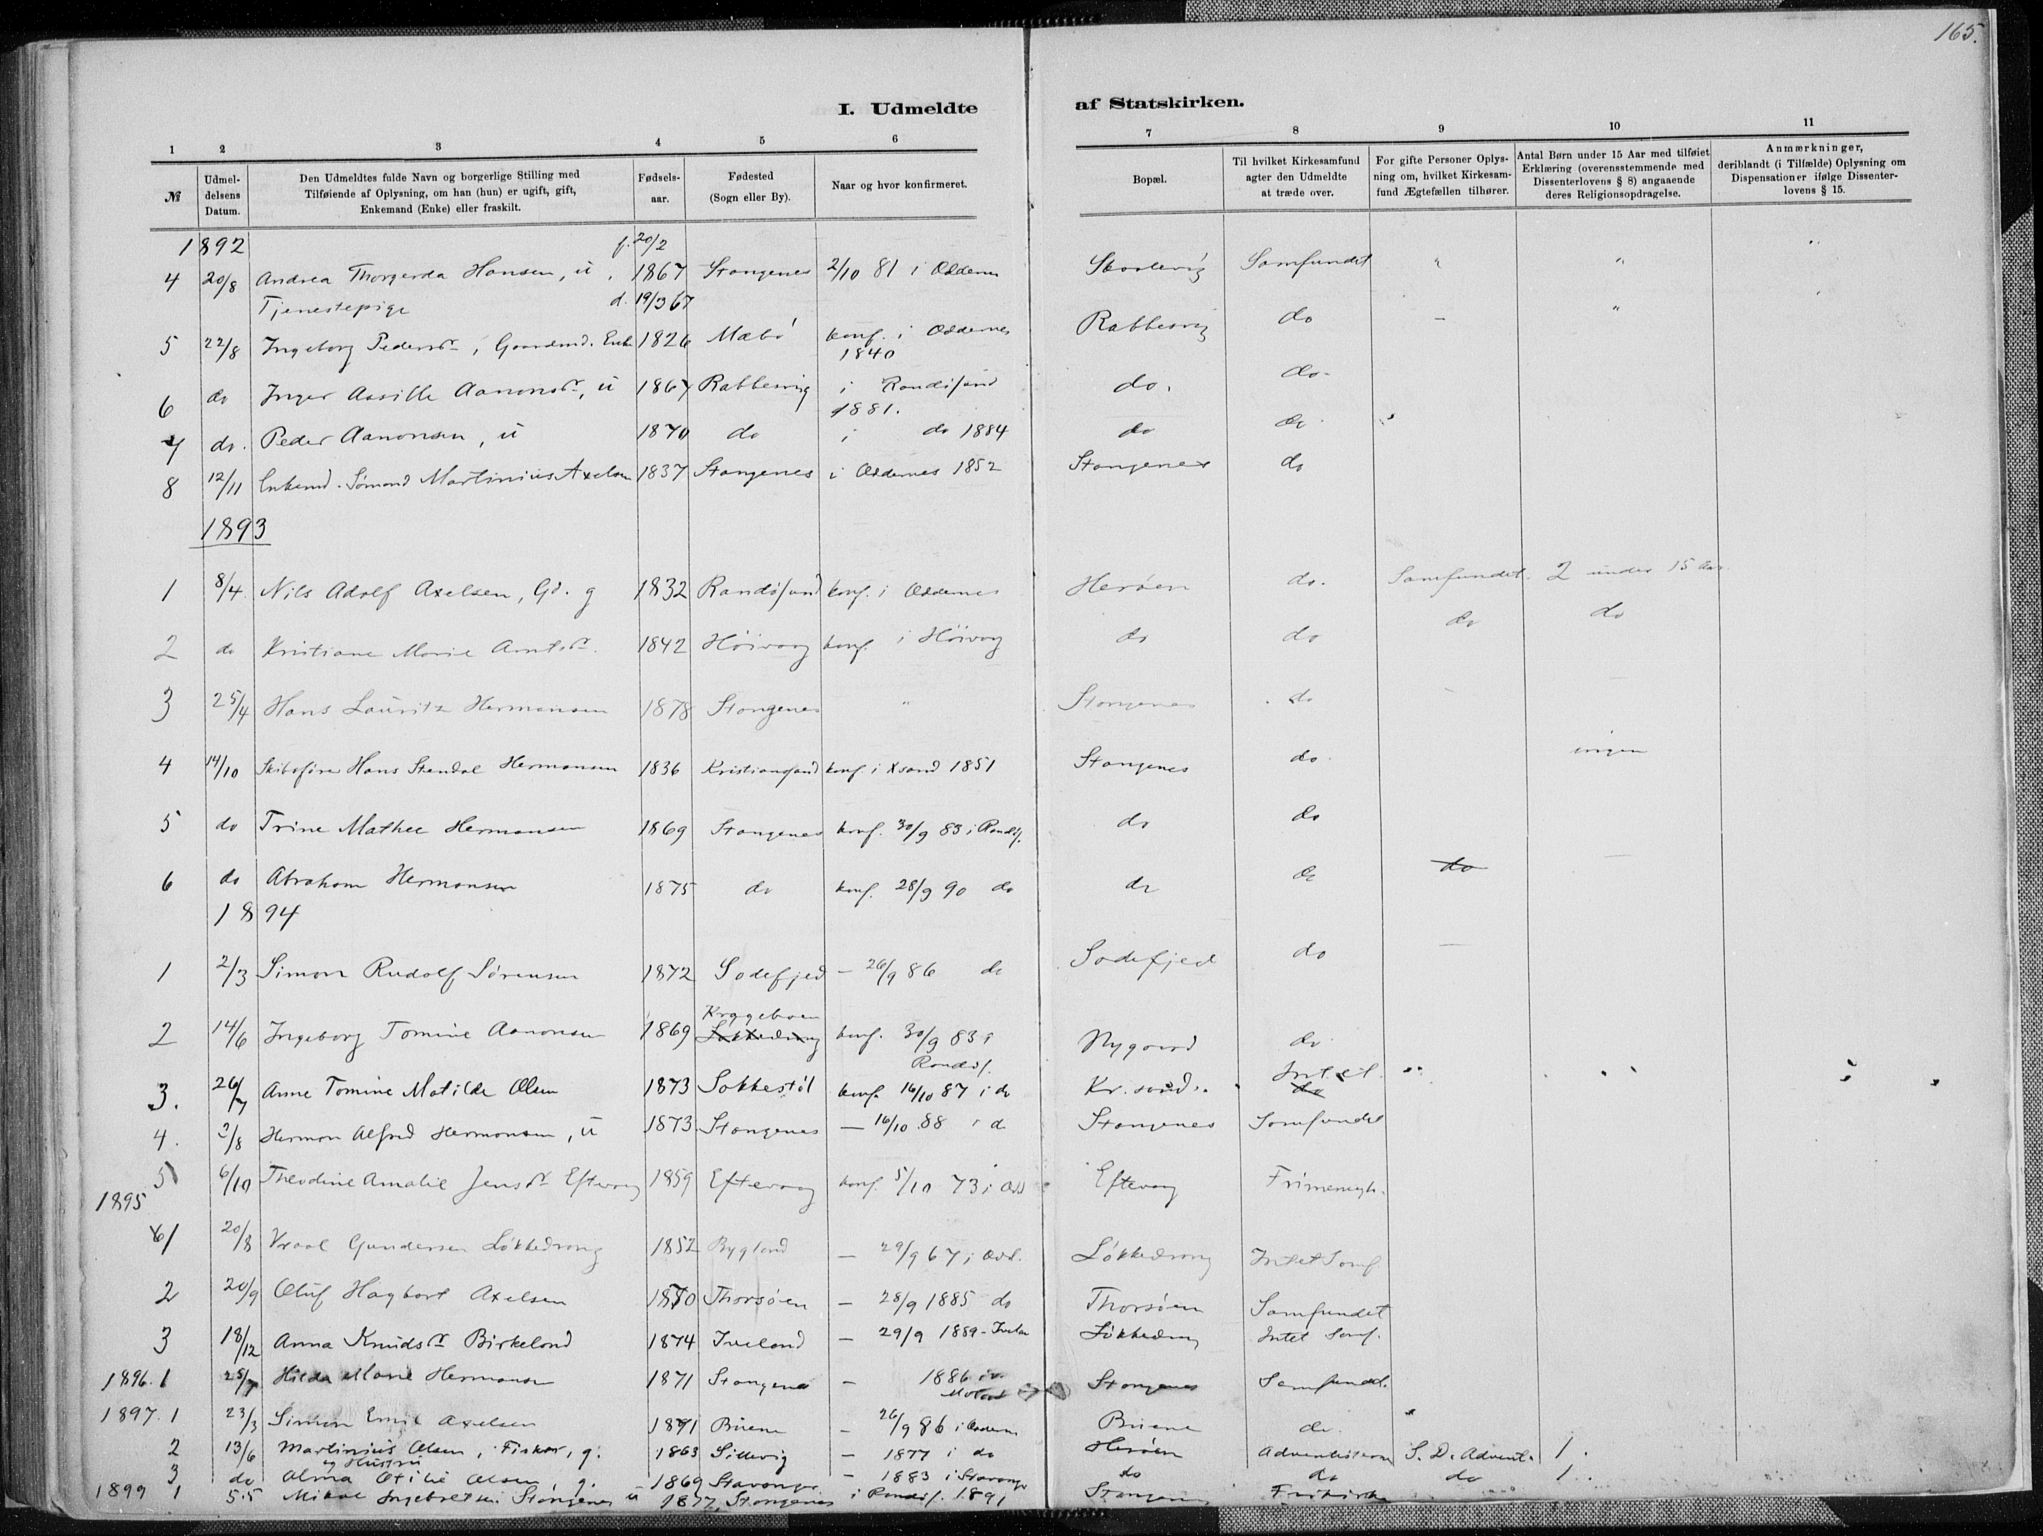 165.
I. Udmeldte af Statskirken.
1 2 3 4 5 6 7 8 9 10 11
№
Udmeldelsens Datum.
Den Udmeldtes fulde Navn og borgerlige Stilling med Tilføiende af Oplysning, om han (hun) er ugift, gift, Enkemand (Enke) eller fraskilt.
Fødselsaar.
Fødested (Sogn eller By).
Naar og hvor konfirmeret.
Bopæl.
Til hvilket Kirkesamfund agter den Udmeldte at træde over.
For gifte Personer Oplysning om, hvilket Kirkesamfund Ægtefællen tilhører.
Antal Børn under 15 Aar med tilføiet Erklæring (overensstemmende med Dissenterlovens § 8) angaaende deres Religionsopdragelse.
Anmærkninger, deriblandt (i Tilfælde) Oplysning om Dispensationer ifølge Dissenterlovens § 15.
1892 f. 20/2
4 20/8 Andrea Thorgerda Hansen, ü. 1867 Stangenes 2/10 81 i Oddernes Samfundet " "
Tjenestepige d. 19/3 67
5 22/8 Ingeborg Pedersdr, Gaardmd. Enke 1826 Mæbø konf. i Oddernes 1840 Rabbesvig do - "
6 do Inger Aasille Aanonsdr, ü 1867 Rabbesvig i Randøsund 1881. do. do.
7 do. Peder Aanonsen, ü 1870 do i do 1884 do do
8 12/11 Enkemd. Sømond Martinius Axelsen 1837 Stangenes i Oddernes 1852 Stangenes do
1893
1 8/4 Nils Adolf Axelsen, Gd. g 1832 Randøsund konf. i Oddernes Herøen do. Samfundet. 2 under 15 Aar
2 do Kristiane Marie Arntsdr. 1842 Høivaag konf. i Høivaag do do do do
3 25/4 Hans Lauritz Hermansen 1878 Stangenes " Stangenes do
4 14/10 Skibsfører Hans Stendal Hermansen 1836 Kristiansand konf. i Xsand 1851 Stangenes do ingen
5 do Trine Mathee Hermansen 1869 Stangenes konf. 30/9 83 i Randøs. do do
6 do Abraham Hermansen 1875 do konf. 28/9 90 do do do do
1894
1 2/3 Simon Rudolf Sørensen 1872 Sodefjed - 26/9 86 do Sodefjed do
2 14/6 Ingeborg Tomine Aanonsen 1869 Kryggeboen Løkkedrang konf. 30/9 83 i Randøs. Nygaard do
3. 26/7 Anne Tomine Matilde Olsen 1873 Sokkestøl konf. 16/10 87 i do Kr.sand. Intet do
4. 3/8 Herman Alfred Hermansen, ü 1873 Stangenes - 16/10 88 i do Stangenes Samfundet
5 6/10 Theodine Amalie Jensdr Eftevaag 1859 Eftevaag konf. 5/10 73 i Odd Eftevaag Frimenigh.
1895
1 20/8 Vraal Gundersen Løkkedrang 1852 Bygland - 29/9 67 i Odd. Løkkedrang Intet Samf
2 20/9 Oluf Hagbart Axelsen 1870 Thorsøen - 28/9 1885 do Thorsøen Samfundet
3 18/12 Anna Knudsdr Birkeland 1874 Iveland - 29/9 1889 - Iveland Løkkedrang Intet Samf.
1896. 1 Hilda Marie Hermansen 1871 Stangenes - 1886 Stangenes Samfundet.
1897. 1 23/3 Simon Emil Axelsen Buene - 26/9 86 i Oddern Buene do.
2 13/6 Martinius Olsen, Fisker, g. 1863 - 1877 i do Herøen Adventisterne S. D. Advent. 1.
og Hustru
3 do Alma Otilie Olsen g. 1869 Stavanger - 1883 i Stavanger do do do 1.
1899 1 5.5 Mikal Ingebretsen Stangenes ü 1877 Stangenes i Randøs. 1891 Stangenes Frikirke